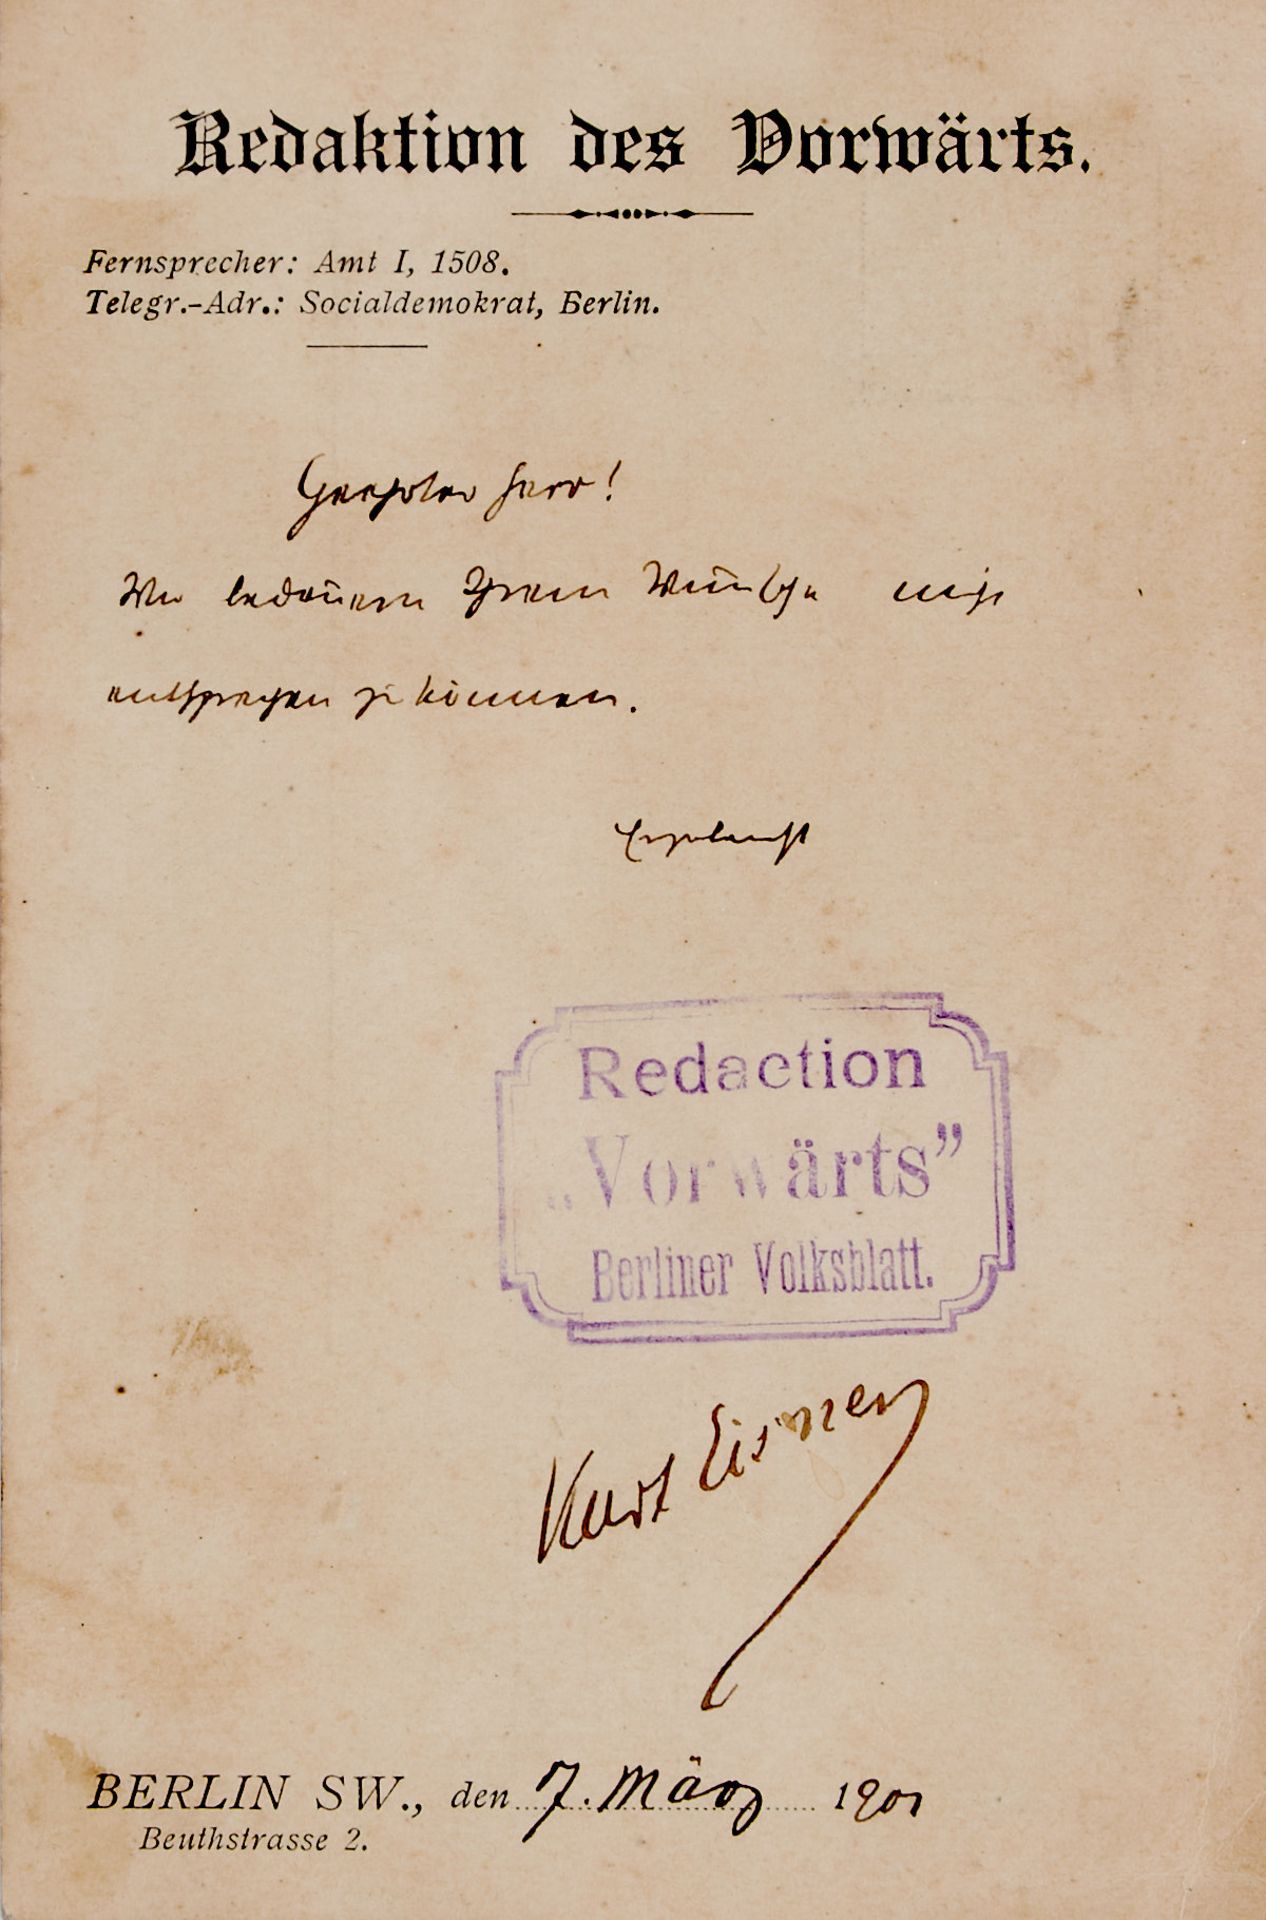 Redaktion des Vorwärts.
Fernsprecher: Amt I, 1508.
Telegr.-Adr.: Socialdemokrat, Berlin.
Geehrter Herr!
Wir bedauern Ihrem Wunsche nicht
entsprechen zu können.
Ergebenst
Redaction
„Vorwärts”
Berliner Volksblatt.
Kurt Eisner
BERLIN SW., den 7. März 1901
Beuthstrasse 2.